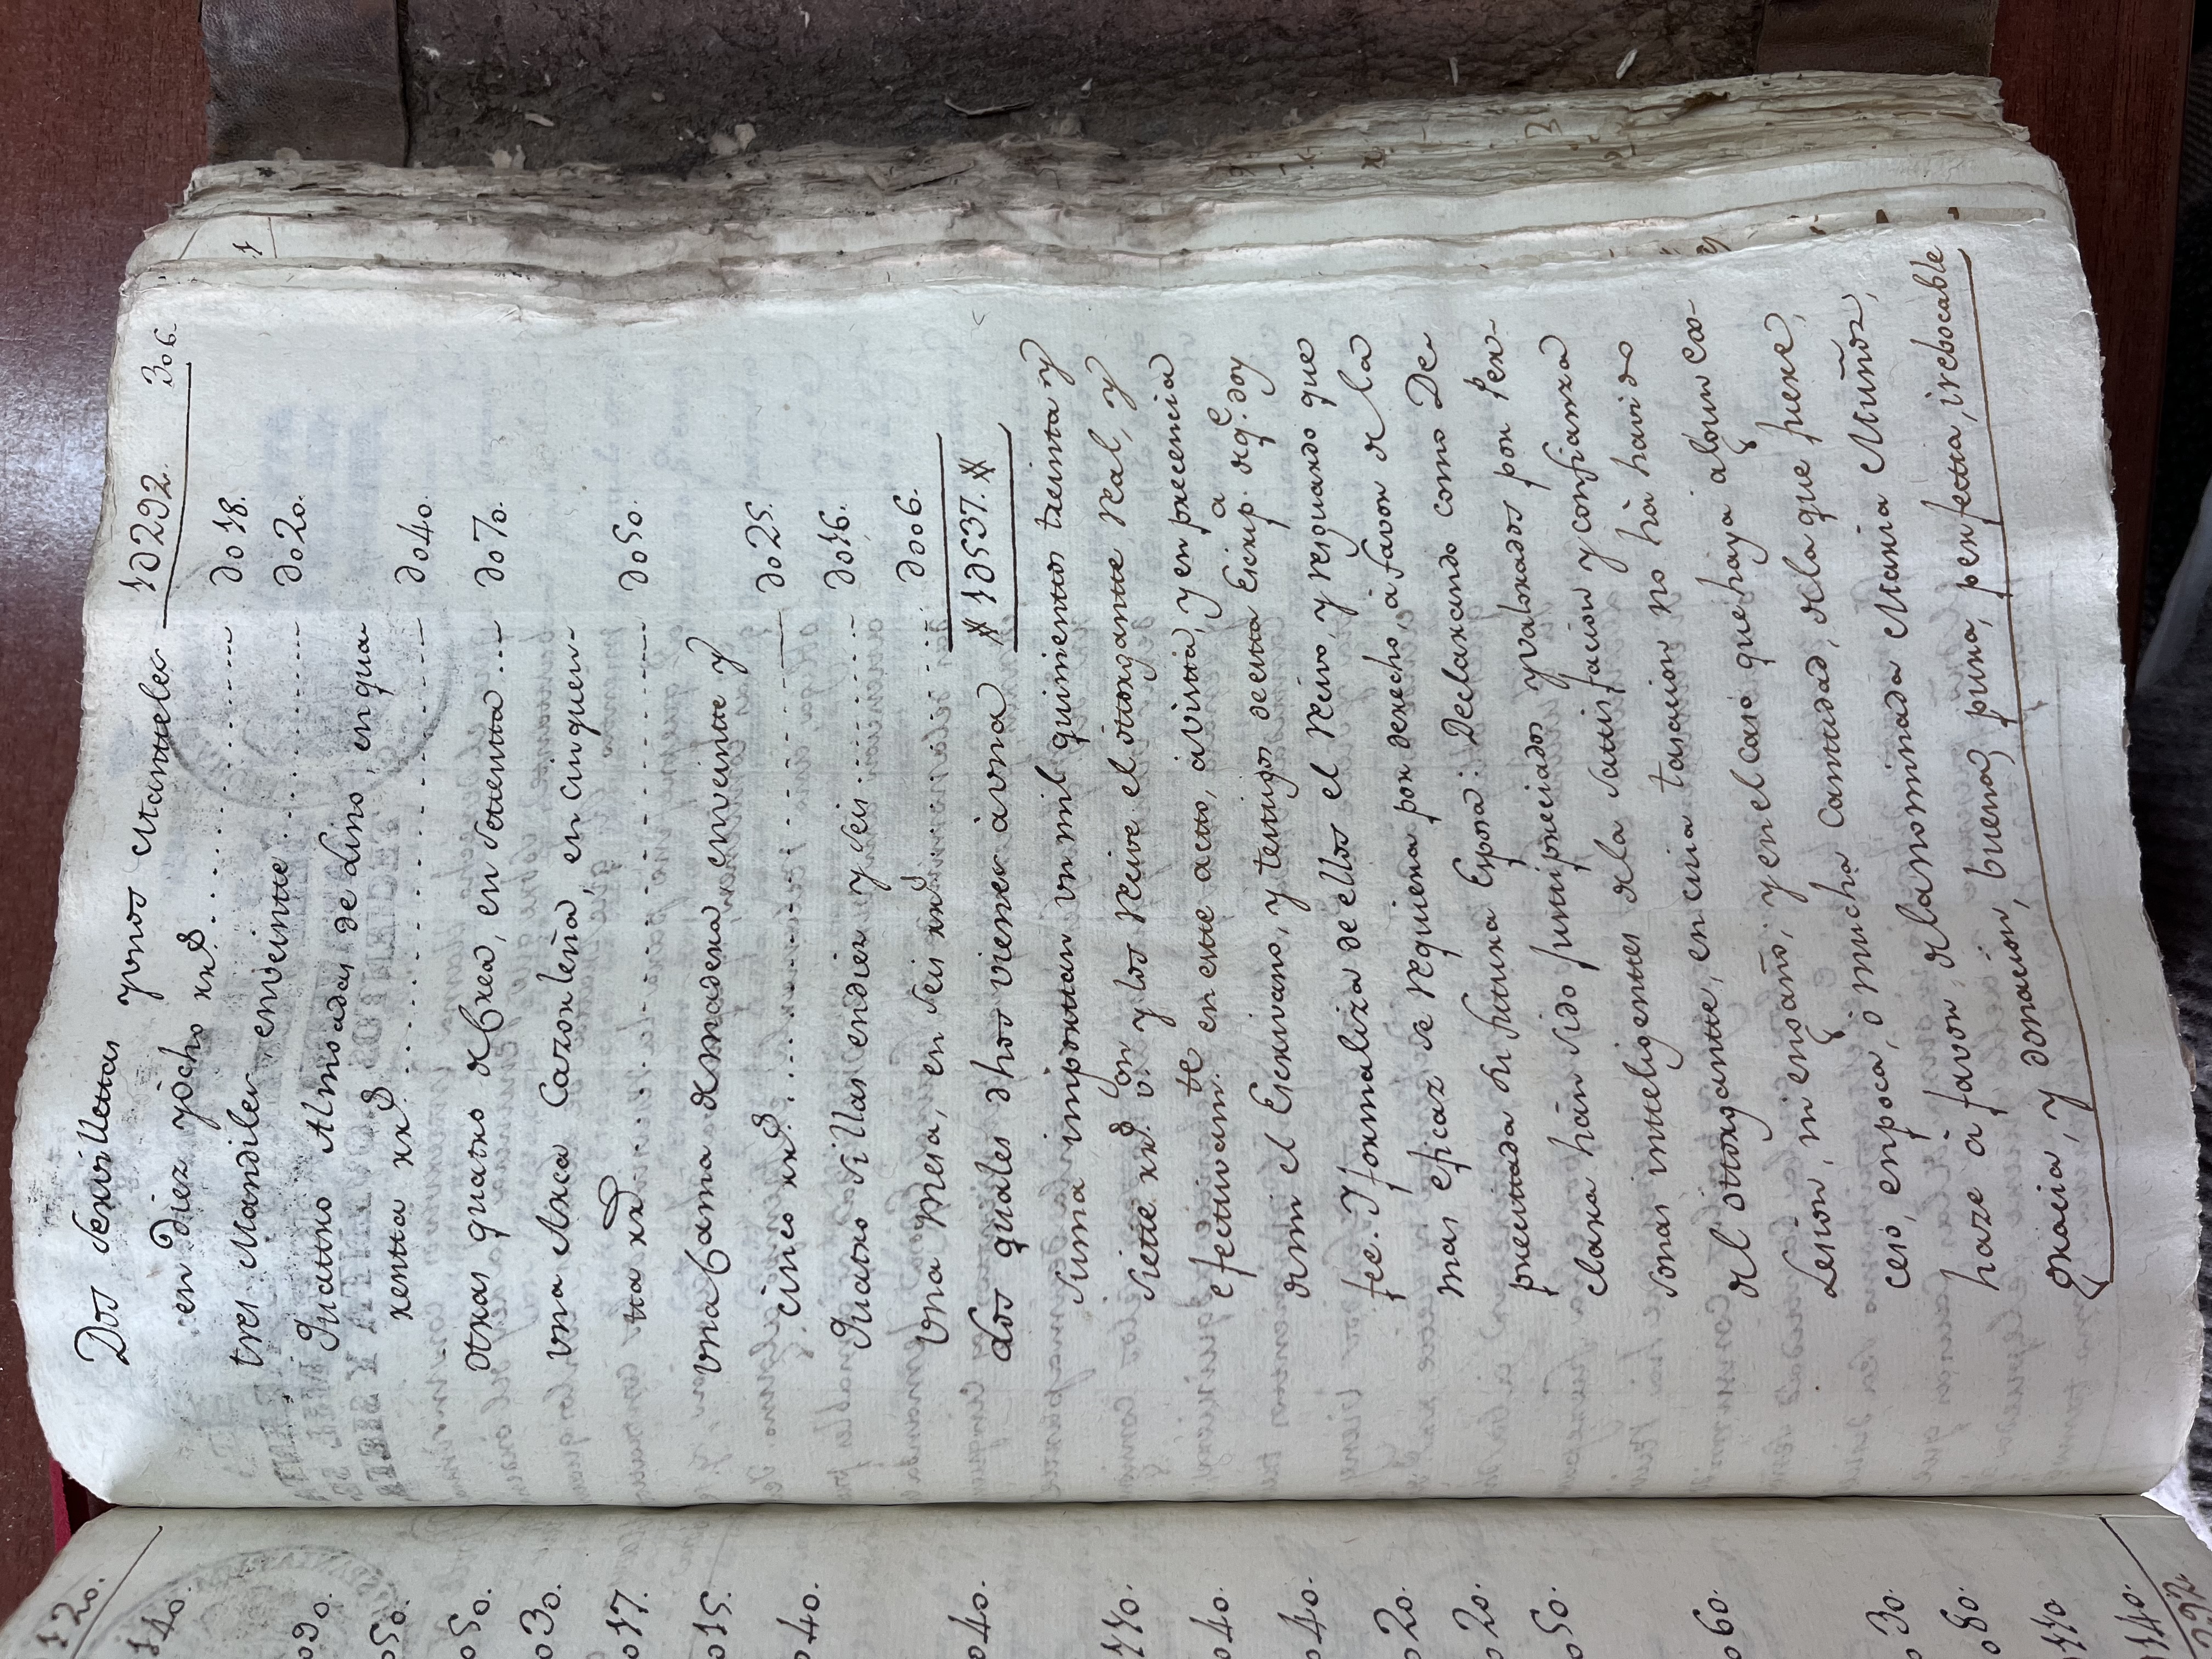 306.
Dos Servilletas y vnos Mantteles 1 292.
en Diez y ocho rrs. 018.
tres Mandiles enveintte 020.
Quattro Almoadas de Lino, en qua-
rentta rrs. 040.
Otras quatro de Crea, en Settentta 070.
Vna Arca Cazorleña, en cinquen-
tta rrs. 050.
Vna Cama de madera enveintte y
cinco rrs. 025.
Quatro Sillas endiez y seis 016.
Vna Mesa, en Seis rrs. 006.
Los quales dhos vienes á vna # 1 537. #
suma importtan vn mil quinienttos treintta y
Siette rrs. von. y los Recive el ottorgantte Real, y
efectivamte. en este actto, á Vistta, y en precencia
de mi el Escrivano, y testigos de estta Escripa. de qe. doy
fee. Y formaliza de ellos el Recivo, y resguardo que
mas eficaz se requiera por derecho, á favor de la
precittada su futura Esposa: Declarando como De-
clara hàn sido justtipreciados y valorados por Per-
sonas intteligenttes de la Sattisfacion y confianza
del ottorgantte, en cuia tasacion no hà havido
Lesion, ni engaño; y en el caso que haya algun ex-
ceso, en poca, o mucha Canttidad, de la que fuere,
haze à favor, de la nominada Maria Muñoz,
gracia, y donacion, buena, pura, perfectta, irebocable
120.
140.
090.
050.
050.
030.
017.
015.
040.
040.
110.
040.
040.
020.
020.
050.
060.
030.
080.
110.
140.
292.